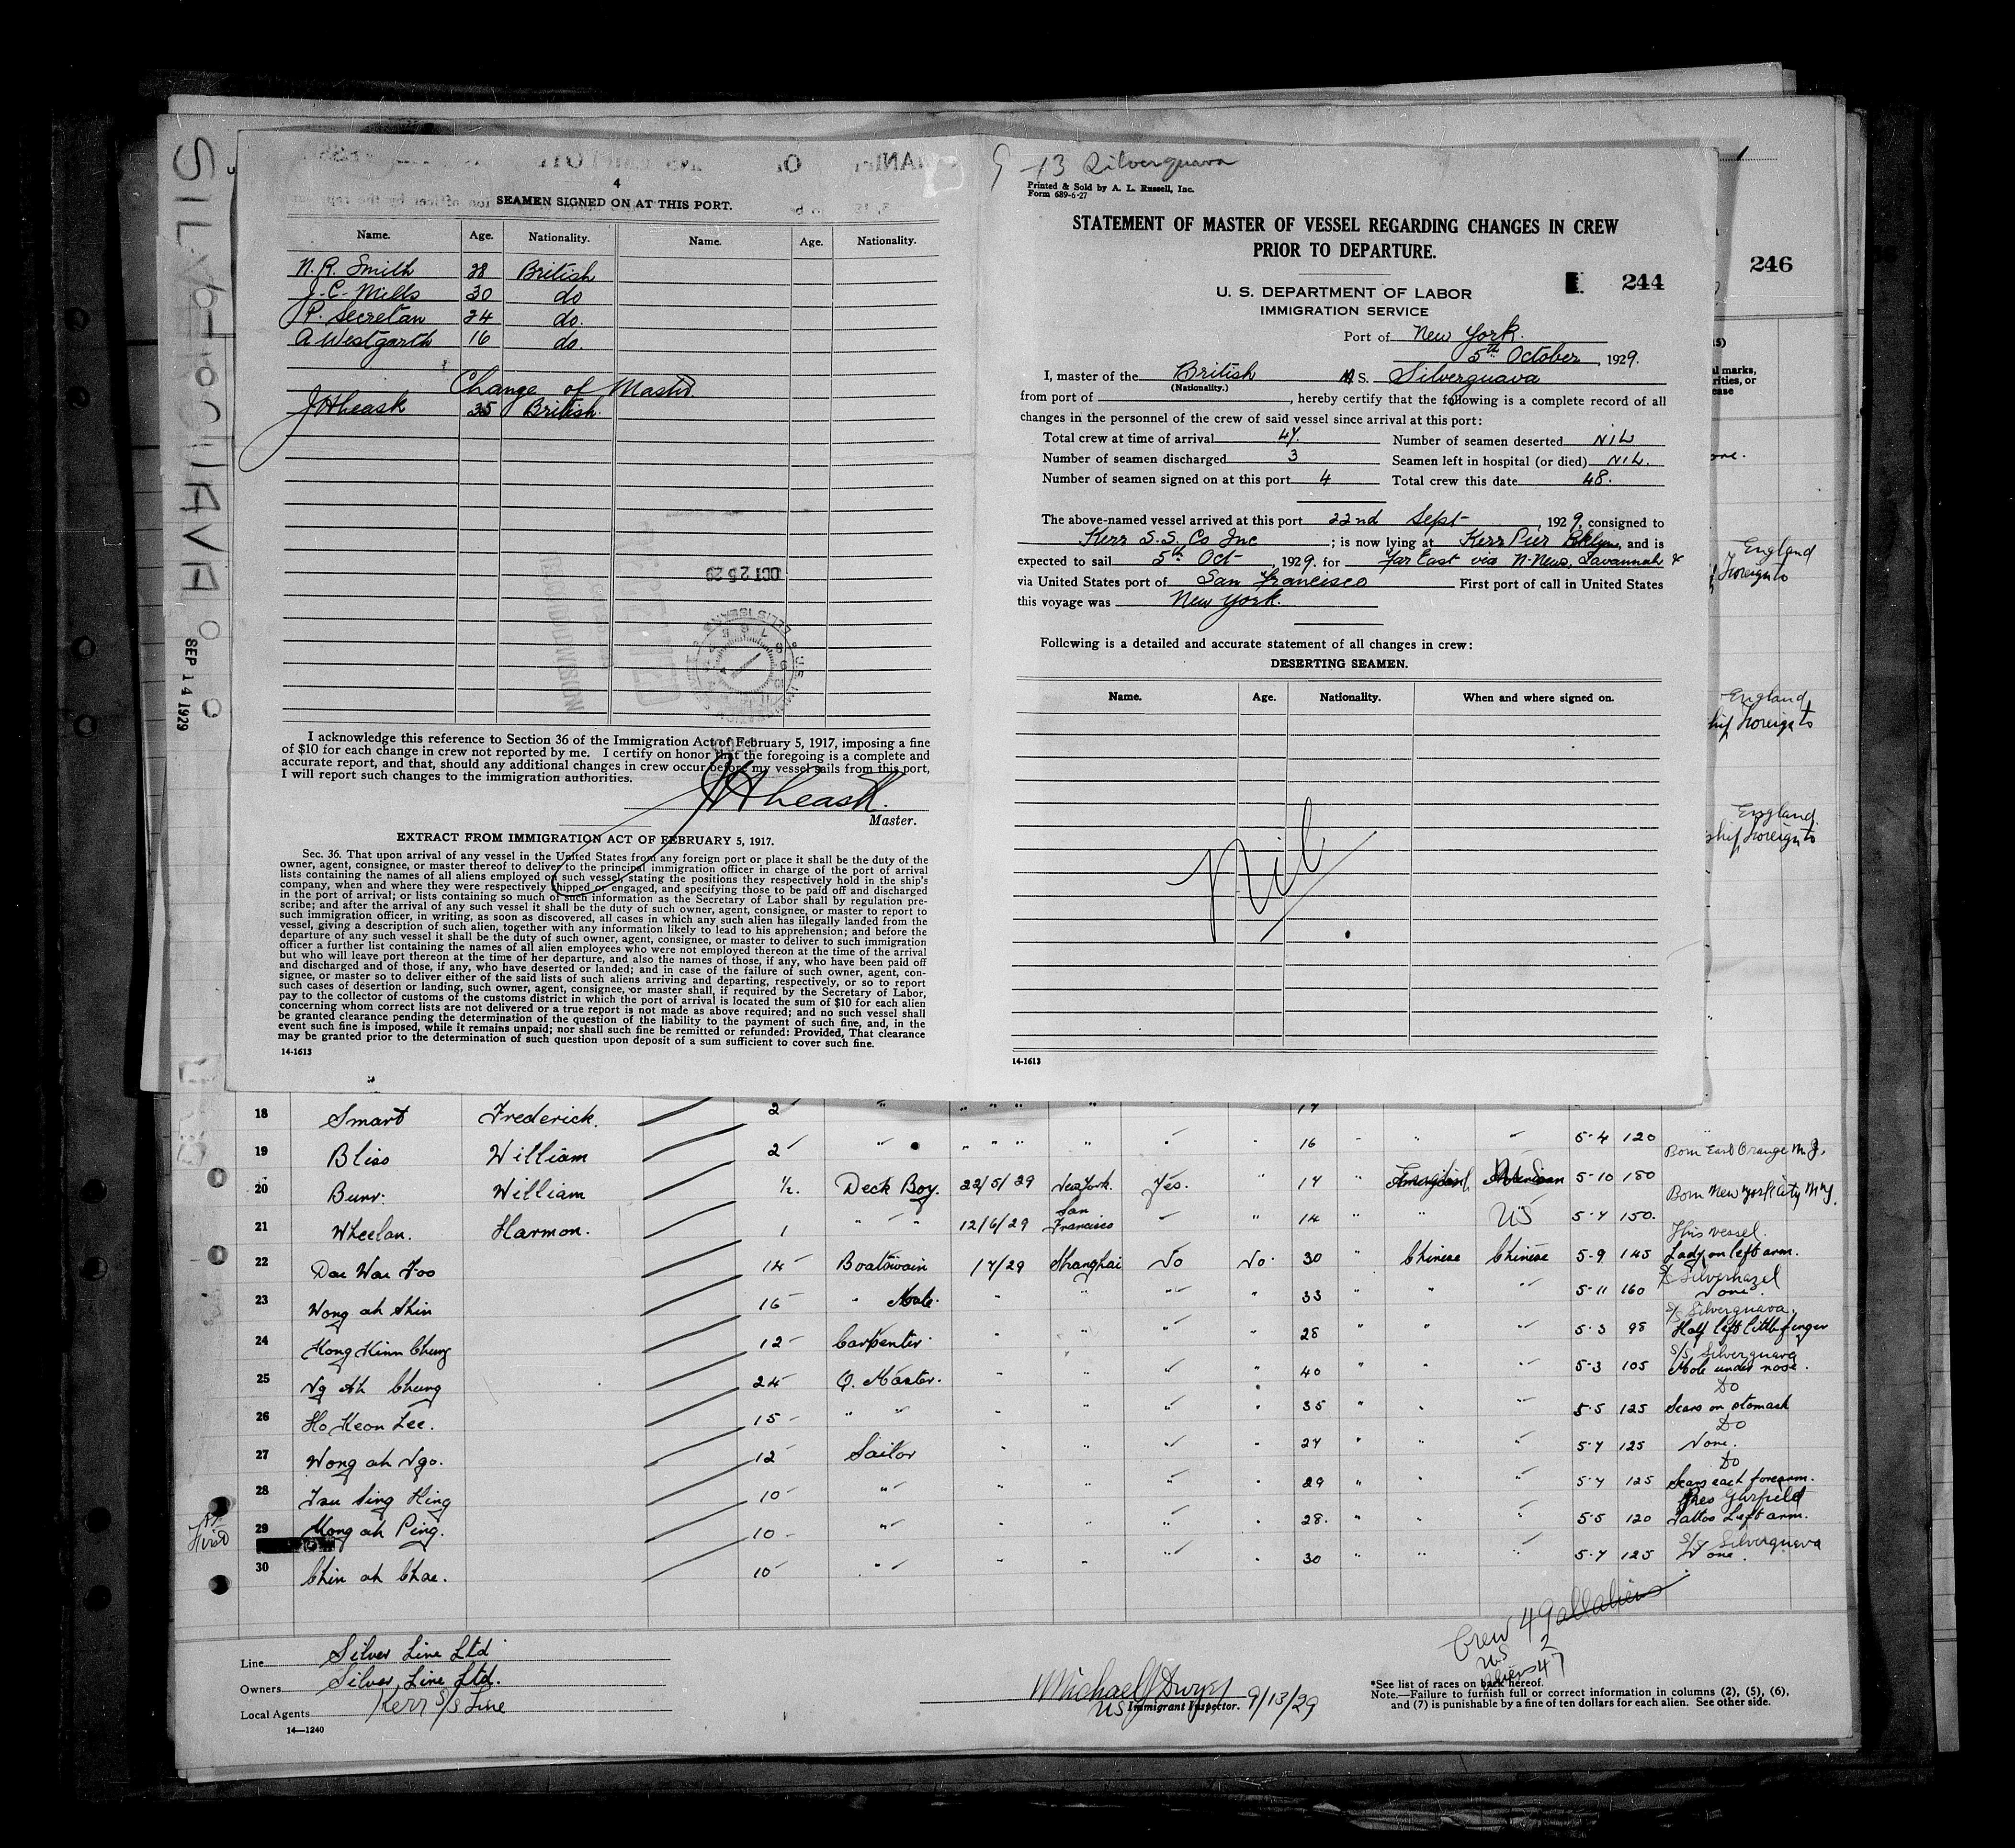 SILVERGUAVA
SEP 14 1929
4
SEAMEN SIGNED ON AT THIS PORT.
Name. Age. Nationality. Name. Age. Nationality.
N. R. Smith 28 British
J. C. Mills 30 do
P. Secretan 24 do.
A Westgarth 16 do.
Change of Master.
J H Leask 35 British.
OCT 25 29
RECORD DIVISION
I acknowledge this reference to Section 36 of the Immigration Act of February 5, 1917, imposing a fine
of $10 for each change in crew not reported by me. I certify on honor that the foregoing is a complete and
accurate report, and that, should any additional changes in crew occur before my vessel sails from this port,
I will report such changes to the immigration authorities.
J H Leask.
Master.
EXTRACT FROM IMMIGRATION ACT OF FEBRUARY 5, 1917.
Sec. 36. That upon arrival of any vessel in the United States from any foreign port or place it shall be the duty of the
owner, agent, consignee, or master thereof to deliver to the principal immigration officer in charge of the port of arrival
lists containing the names of all aliens employed on such vessel, stating the positions they respectively hold in the ship's
company, when and where they were respectively shipped or engaged, and specifying those to be paid off and discharged
in the port of arrival; or lists containing so much of such information as the Secretary of Labor shall by regulation pre-
scribe; and after the arrival of any such vessel it shall be the duty of such owner, agent, consignee, or master to report to
such immigration officer, in writing, as soon as discovered, all cases in which any such alien has illegally landed from the
vessel, giving a description of such alien, together with any information likely to lead to his apprehension; and before the
departure of any such vessel it shall be the duty of such owner, agent, consignee, or master to deliver to such immigration
officer a further list containing the names of all alien employees who were not employed thereon at the time of the arrival
but who will leave port thereon at the time of her departure, and also the names of those, if any, who have been paid off
and discharged and of those, if any, who have deserted or landed; and in case of the failure of such owner, agent, con-
signee, or master so to deliver either of the said lists of such aliens arriving and departing, respectively, or so to report
such cases of desertion or landing, such owner, agent, consignee, or master shall, if required by the Secretary of Labor,
pay to the collector of customs of the customs district in which the port of arrival is located the sum of $10 for each alien
concerning whom correct lists are not delivered or a true report is not made as above required; and no such vessel shall
be granted clearance pending the determination of the question of the liability to the payment of such fine, and, in the
event such fine is imposed, while it remains unpaid; nor shall such fine be remitted or refunded: Provided, That clearance
may be granted prior to the determination of such question upon deposit of a sum sufficient to cover such fine.
14-1613
9-13 Silverguava
Printed & Sold by A. L. Russell, Inc.
Form 689-6-27
STATEMENT OF MASTER OF VESSEL REGARDING CHANGES IN CREW
PRIOR TO DEPARTURE.
244
246
U. S. DEPARTMENT OF LABOR
IMMIGRATION SERVICE
Port of New York.
5th October, 1929.
I, master of the British M S. Silverguava
(Nationality.)
from port of , hereby certify that the following is a complete record of all
changes in the personnel of the crew of said vessel since arrival at this port:
Total crew at time of arrival 47. Number of seamen deserted NIL
Number of seamen discharged 3 Seamen left in hospital (or died) NIL.
Number of seamen signed on at this port 4 Total crew this date 48.
The above-named vessel arrived at this port 22nd Sept, 1929, consigned to
Kerr S.S. Co Inc; is now lying at Kerr Pier Bklyn, and is
expected to sail 5th Oct, 1929. for Far East via N-News, Savannah &
via United States port of San Francisco First port of call in United States
this voyage was New York.
Following is a detailed and accurate statement of all changes in crew:
DESERTING SEAMEN.
Name. Age. Nationality. When and where signed on.
Nil
14-1613
al marks,
rities, or
ease
England
Foreign to
England
ship foreign to
England
ship foreign to
18 Smart Frederick. 2 " " " " 17
19 Bliss William 2 " " " " " 16 " " 5-4 120
Born East Orange N.J.
20 Burr. William 1/2. Deck Boy. 22/5/29 New York. Yes. " 17 5-10 180
Born New York City N.Y.
21 Wheelan. Harmon. 1 " " 12/6/29 San Francisco " 14 " " US 5-7 150.
This vessel.
22 Dae Wae Foo 14 Boatswain 1/7/29 Shanghai No No. 30 " Chinese Chinese 5-9 145 Lady on left arm.
S/S Silverhazel
23 Wong ah Shin 16 " Mate. " " " " 33 " " " 5-11 160 None.
S/S Silverguava.
24 Hong Kinn Chung 12 Carpenter. " " " 28 " " " 5-3 98 Half left little finger
S/S Silverguava
25 Ng Ah Chung 24 Q. Master. " " " " 40 " " " 5-3 105 Mole under nose.
Do
26 Ho Keon Lee. 15 " " " " " " 35 " " " 5-5 125 Scars on stomach
Do
27 Wong ah Ngo. 12 Sailor " " " " 24 " " " 5-7 125 None.
Do
28 Tsu Sing Hing 10 " " " " " 29 " " " 5-7 125 Scars each forearm.
Pres Garfield
29 Mong ah Ping. 10 " " " " " 28. " " " 5-5 120 Tattoo Left arm.
S/S Silverguava
30 Chin ah Chae. 10 " " " " " 30 " " " 5-7 125 None.
Crew 49 all aliens
US 2
aliens 47
Line Silver Line Ltd
Owners Silver Line Ltd.
Local Agents Kerr S/S Line
14—1240
US Immigrant Inspector. 9/13/29
*See list of races on back hereof.
Note.—Failure to furnish full or correct information in columns (2), (5), (6),
and (7) is punishable by a fine of ten dollars for each alien. See other side.